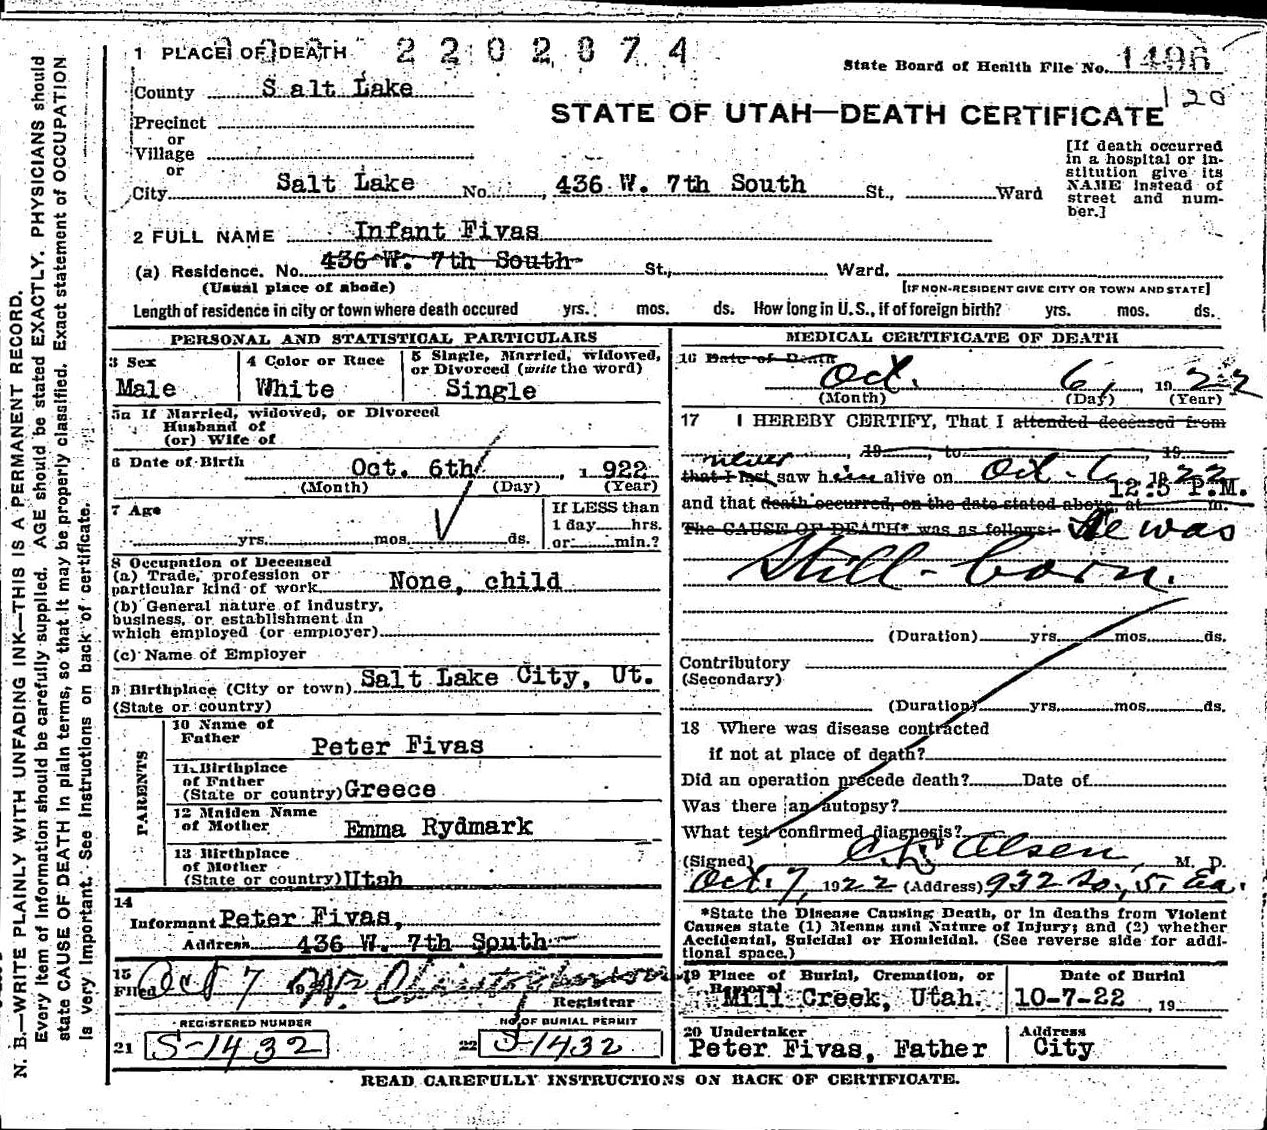 N. B.—WRITE PLAINLY WITH UNFADING INK—THIS IS A PERMANENT RECORD.
Every item of information should be carefully supplied. AGE should be stated EXACTLY. PHYSICIANS should
state CAUSE OF DEATH in plain terms, so that it may be properly classified. Exact statement of OCCUPATION
is very important. See instructions on back of certificate.
1 PLACE OF DEATH 2202874
State Board of Health File No. 1496
120
County Salt Lake
STATE OF UTAH—DEATH CERTIFICATE
Precinct
or
Village
or
City Salt Lake No. 436 W. 7th South St., Ward
[If death occurred
in a hospital or in-
stitution give its
NAME instead of
street and num-
ber.]
2 FULL NAME Infant Fivas
(a) Residence. No. 436 W. 7th South St., Ward.
(Usual place of abode) [IF NON-RESIDENT GIVE CITY OR TOWN AND STATE]
Length of residence in city or town where death occured yrs. mos. ds. How long in U.S., if of foreign birth? yrs. mos. ds.
PERSONAL AND STATISTICAL PARTICULARS
3 Sex
Male
4 Color or Race
White
5 Single, Married, widowed,
or Divorced (write the word)
Single
5a If Married, widowed, or Divorced
Husband of
(or) Wife of
6 Date of Birth Oct. 6th, 1922
(Month) (Day) (Year)
7 Age
yrs. mos. ds.
If LESS than
1 day hrs.
or min.?
8 Occupation of Deceased
(a) Trade, profession or
particular kind of work None, child
(b) General nature of Industry,
business, or establishment in
which employed (or employer)
(c) Name of Employer
9 Birthplace (City or town) Salt Lake City, Ut.
(State or country)
PARENTS
10 Name of
Father Peter Fivas
11 Birthplace
of Father
(State or country) Greece
12 Maiden Name
of Mother Emma Rydmark
13 Birthplace
of Mother
(State or country) Utah
14
Informant Peter Fivas,
Address 436 W. 7th South
15
Filed Oct 7 19
Registrar
REGISTERED NUMBER
21 S-1432
NO. OF BURIAL PERMIT
22 S-1432
MEDICAL CERTIFICATE OF DEATH
16 Date of Death
Oct. 6, 1922
(Month) (Day) (Year)
17 I HEREBY CERTIFY, That I attended deceased from
, 19 , to , 19
never
that I last saw him alive on Oct - 6 1922
12:5 P.M.
and that death occurred, on the date stated above, at m.
The CAUSE OF DEATH* was as follows: He was
Still-born.
(Duration) yrs. mos. ds.
Contributory
(Secondary)
(Duration) yrs. mos. ds.
18 Where was disease contracted
if not at place of death?
Did an operation precede death? Date of
Was there an autopsy?
What test confirmed diagnosis?
(Signed) Olsen, M. D.
Oct. 7, 1922 (Address) 932 So., 5. Ea.
*State the Disease Causing Death, or in deaths from Violent
Causes state (1) Menus and Nature of Injury; and (2) whether
Accidental, Suicidal or Homicidal. (See reverse side for addi-
tional space.)
19 Place of Burial, Cremation, or
Removal
Mill Creek, Utah.
Date of Burial
10-7-22, 19
20 Undertaker
Peter Fivas, Father
Address
City
READ CAREFULLY INSTRUCTIONS ON BACK OF CERTIFICATE.